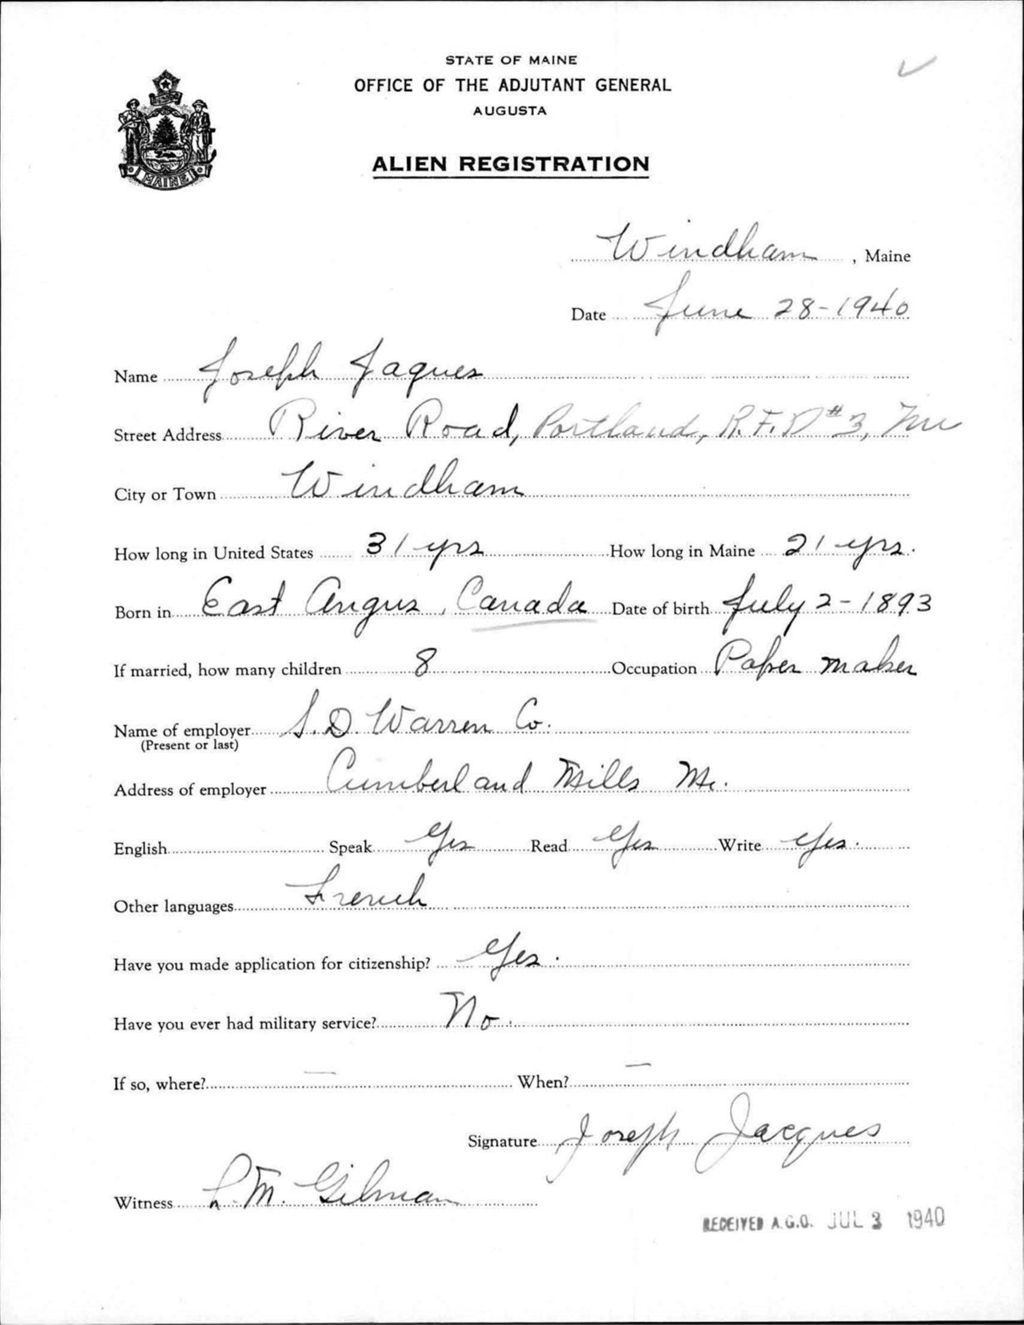 STATE OF MAINE
OFFICE OF THE ADJUTANT GENERAL
AUGUSTA
MAINE
ALIEN REGISTRATION
Windham, Maine
Date June 28-1940
Name Joseph Jaques
Street Address River Road, Portland, R.F.D #3, Me
City or Town Windham
How long in United States 31 yrs How long in Maine 21 yrs.
Born in East Angus, Canada Date of birth July 2-1893
If married, how many children 8 Occupation Paper maker
Name of employer S.D. Warren Co.
(Present or last)
Address of employer Cumberland Mills Me.
English Speak Yes Read Yes Write Yes.
Other languages French
Have you made application for citizenship? Yes.
Have you ever had military service? No.
If so, where? — When? —
Signature Joseph Jacques
Witness L.M. Gilman
RECEIVED A.G.O. JUL 3 1940